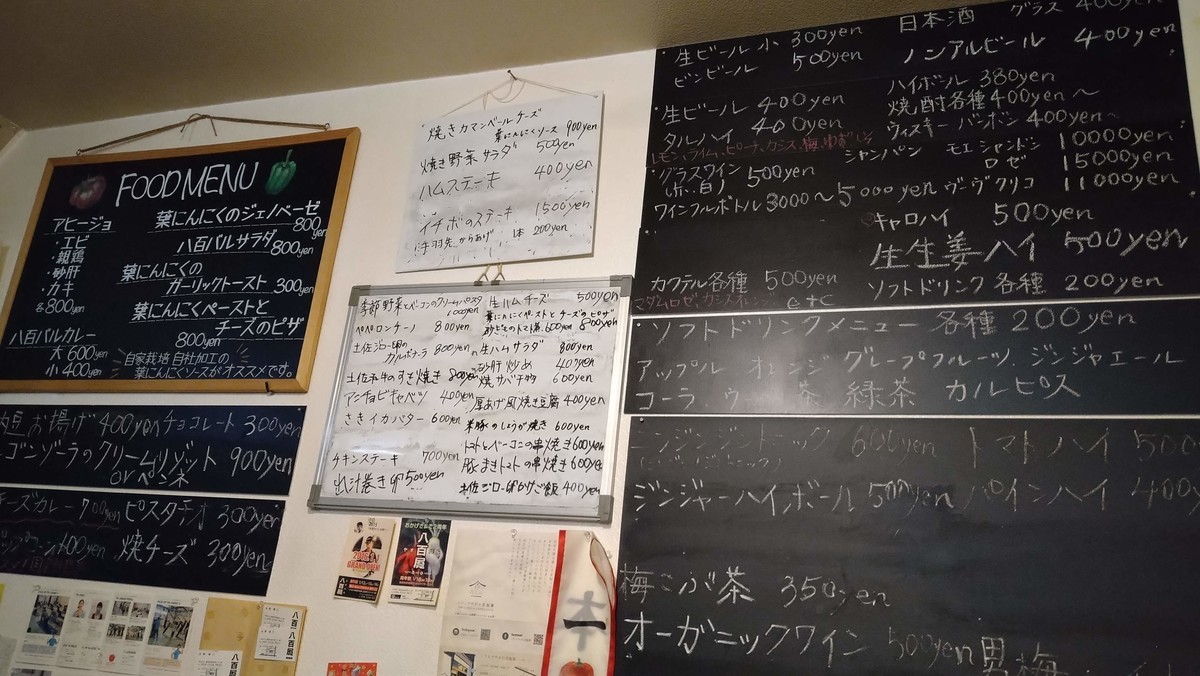 FOOD MENU
アヒージョ
・エビ
・親鶏
・砂肝
・カキ
各800yen
八百バルカレー
大 600yen
小 400yen
葉にんにくのジェノベーゼ
800yen
八百バルサラダ
800yen
葉にんにくの
ガーリックトースト 300yen
葉にんにくペーストと
チーズのピザ
800yen
自家栽培 自社加工の
葉にんにくソースがオススメです。
お揚げ 400yen チョコレート 300yen
ゴンゾーラのクリームリゾット 900yen
orペンネ
チーズカレー 700yen ピスタチオ 300yen
焼チーズ 300yen
焼きカマンベールチーズ
葉にんにくソース 900yen
焼き野菜サラダ 500yen
ハムステーキ 400yen
イチボのステーキ 1500yen
手羽先からあげ 1本 200yen
季節野菜とベーコンのクリームパスタ
1000yen
ペペロンチーノ 800yen
土佐ジロー卵の
カルボナーラ 800yen
土佐和牛のすき焼き 800yen
アンチョビキャベツ 400yen
さきイカバター 600yen
チキンステーキ 700yen
出汁巻き卵 500yen
生ハムチーズ 500yen
葉にんにくペーストとチーズのピザ
800yen
砂ずりのトマト煮 600yen
生ハムサラダ 800yen
砂肝炒め 400yen
焼サバ 600yen
厚あげ風焼き豆腐 400yen
米豚のしょうが焼き 600yen
トマトとベーコンの串焼き 600yen
豚まきトマトの串焼き 600yen
土佐ジロー卵かけご飯 400yen
・生ビール 小 300yen
ビンビール 500yen
・生ビール 400yen
タルハイ 400yen
・グラスワイン
(赤、白) 500yen
ワインフルボトル 3000〜5000yen
カクテル各種 500yen
etc
日本酒 グラス 400yen
ノンアルビール 400yen
ハイボール 380yen
焼酎各種 400yen〜
ウィスキー バーボン 400yen〜
シャンパン モエシャンドン 10000yen
ロゼ 15000yen
ヴーヴクリコ 11000yen
キャロハイ 500yen
生生姜ハイ 500yen
ソフトドリンク各種 200yen
・ソフトドリンクメニュー 各種 200yen
アップル オレンジ グレープフルーツ. ジンジャエール
コーラ ウーロン茶 緑茶 カルピス
ニンジンジントニック 600yen トマトハイ 500
ジンジャーハイボール 500yen パインハイ 400y
梅こぶ茶 350yen
オーガニックワイン 500yen 男梅
八百屋
GRAND OPEN!